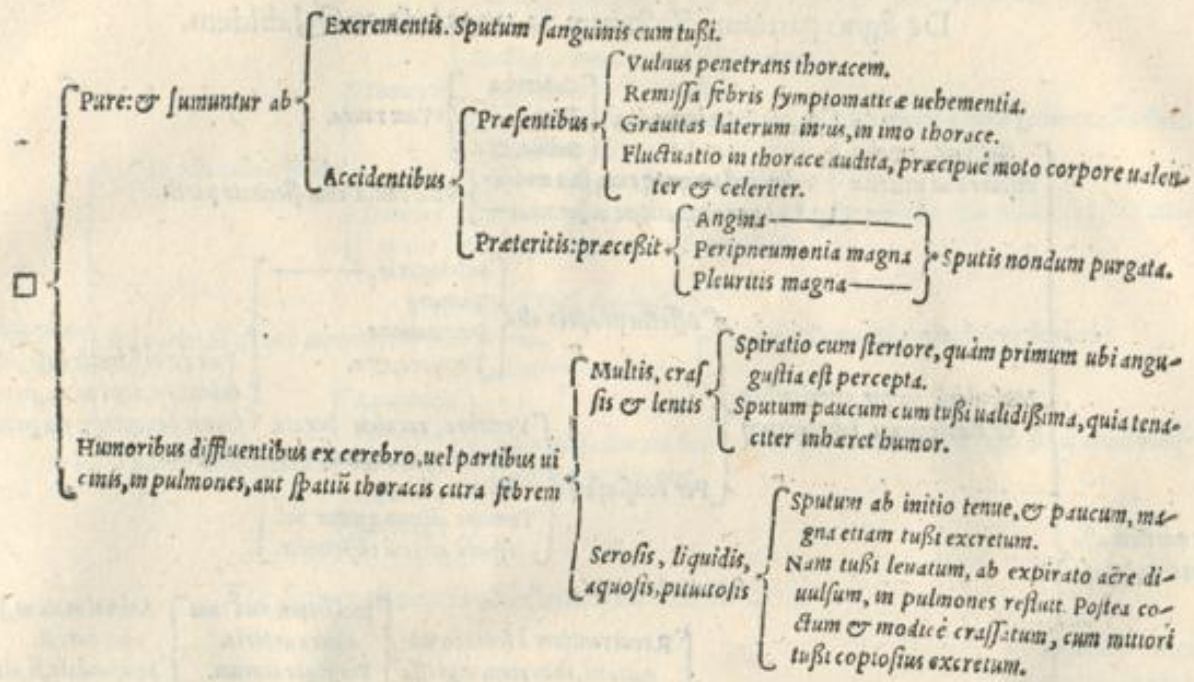 Excrementis. Sputum ſanguinis cum tußi.
Pure: & ſumuntur ab
Accidentibus
Præſentibus
Vulnus penetrans thoracem.
Remiſſa febris ſymptomaticæ uehementia.
Grauitas laterum intus, in imo thorace.
Fluctuatio in thorace audita, præcipuè moto corpore ualen-
ter & celeriter.
Præteritis: præceßit
Angina
Peripneumonia magna
Pleuritis magna
Sputis nondum purgata.
Humoribus diffluentibus ex cerebro, uel partibus ui
cinis, in pulmones, aut ſpatiũ thoracis citra febrem
Multis, craſ
ſis & lentis
Spiratio cum ſtertore, quàm primum ubi angu-
guſtia eſt percepta.
Sputum paucum cum tußi ualidißima, quia tena-
citer inhæret humor.
Seroſis, liquidis,
aquoſis, pituitoſis
Sputum ab initio tenue, & paucum, ma-
gna etiam tußi excretum.
Nam tußi leuatum, ab expirato aëre di-
uulſum, in pulmones refluit. Poſtea co-
ctum & modicè craſſatum, cum mitiori
tußi copioſius excretum.